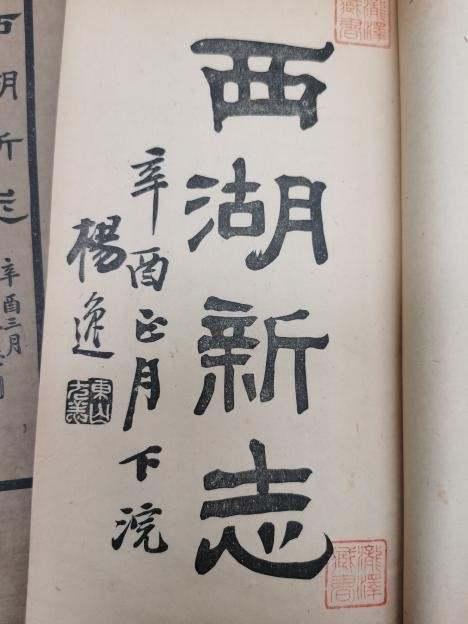 西湖新志
辛酉正月下浣
楊逸
東山
瀧澤
藏書
瀧澤
藏書
西湖新志
辛酉三月